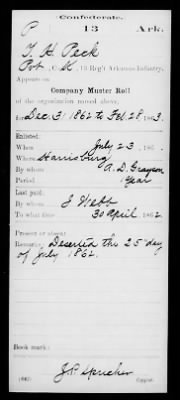 Confederate.
P 13 Ark.
T. H. Peck
Pvt., Co. K, 13 Reg't Arkansas Infantry.
Appears on
Company Muster Roll
of the organization named above,
for Dec. 31 1862 to Feb. 28, 1863.
Enlisted:
When July 23, 186 .
Where Harrisburg
By whom A. D. Grayson
Period 1 Year
Last paid:
By whom J Webb
To what time 30 April 1862.
Present or absent
Remarks: Deserted the 25 day
of July 1862.
Book mark:
(642)
Copyist.